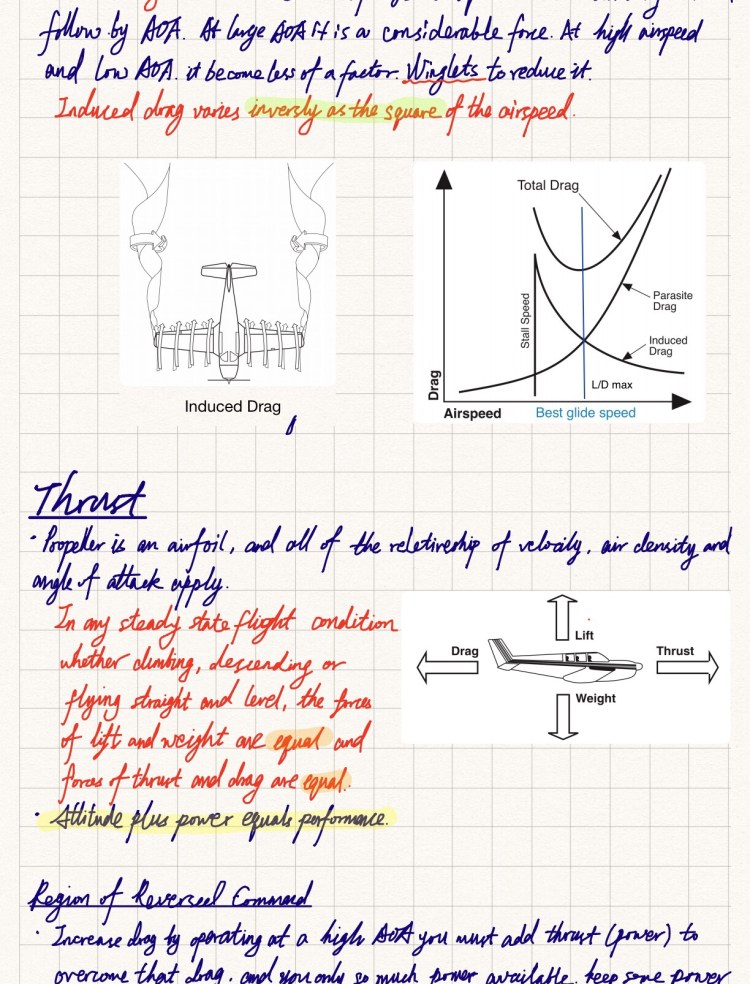 follow by AOA. At large AOA it is a considerable force. At high airspeed
and low AOA. it become less of a factor. Winglets to reduce it.
Induced drag varies inversly as the square of the airspeed.
Induced Drag
Total Drag
Parasite
Drag
Induced
Drag
Stall Speed
L/D max
Drag
Airspeed
Best glide speed
Thrust
· Propeller is an airfoil, and all of the reletivership of velocity, air density and
angle of attack apply.
In any steady state flight condition
whether climbing, descending or
flying straight and level, the forces
of lift and weight are equal and
forces of thrust and drag are equal.
Lift
Drag
Thrust
Weight
· Attitude plus power equals performance.
Region of Reversed Command
· Increase drag by operating at a high AOA you must add thrust (power) to
overcome that drag. and you only so much power available. keep some power